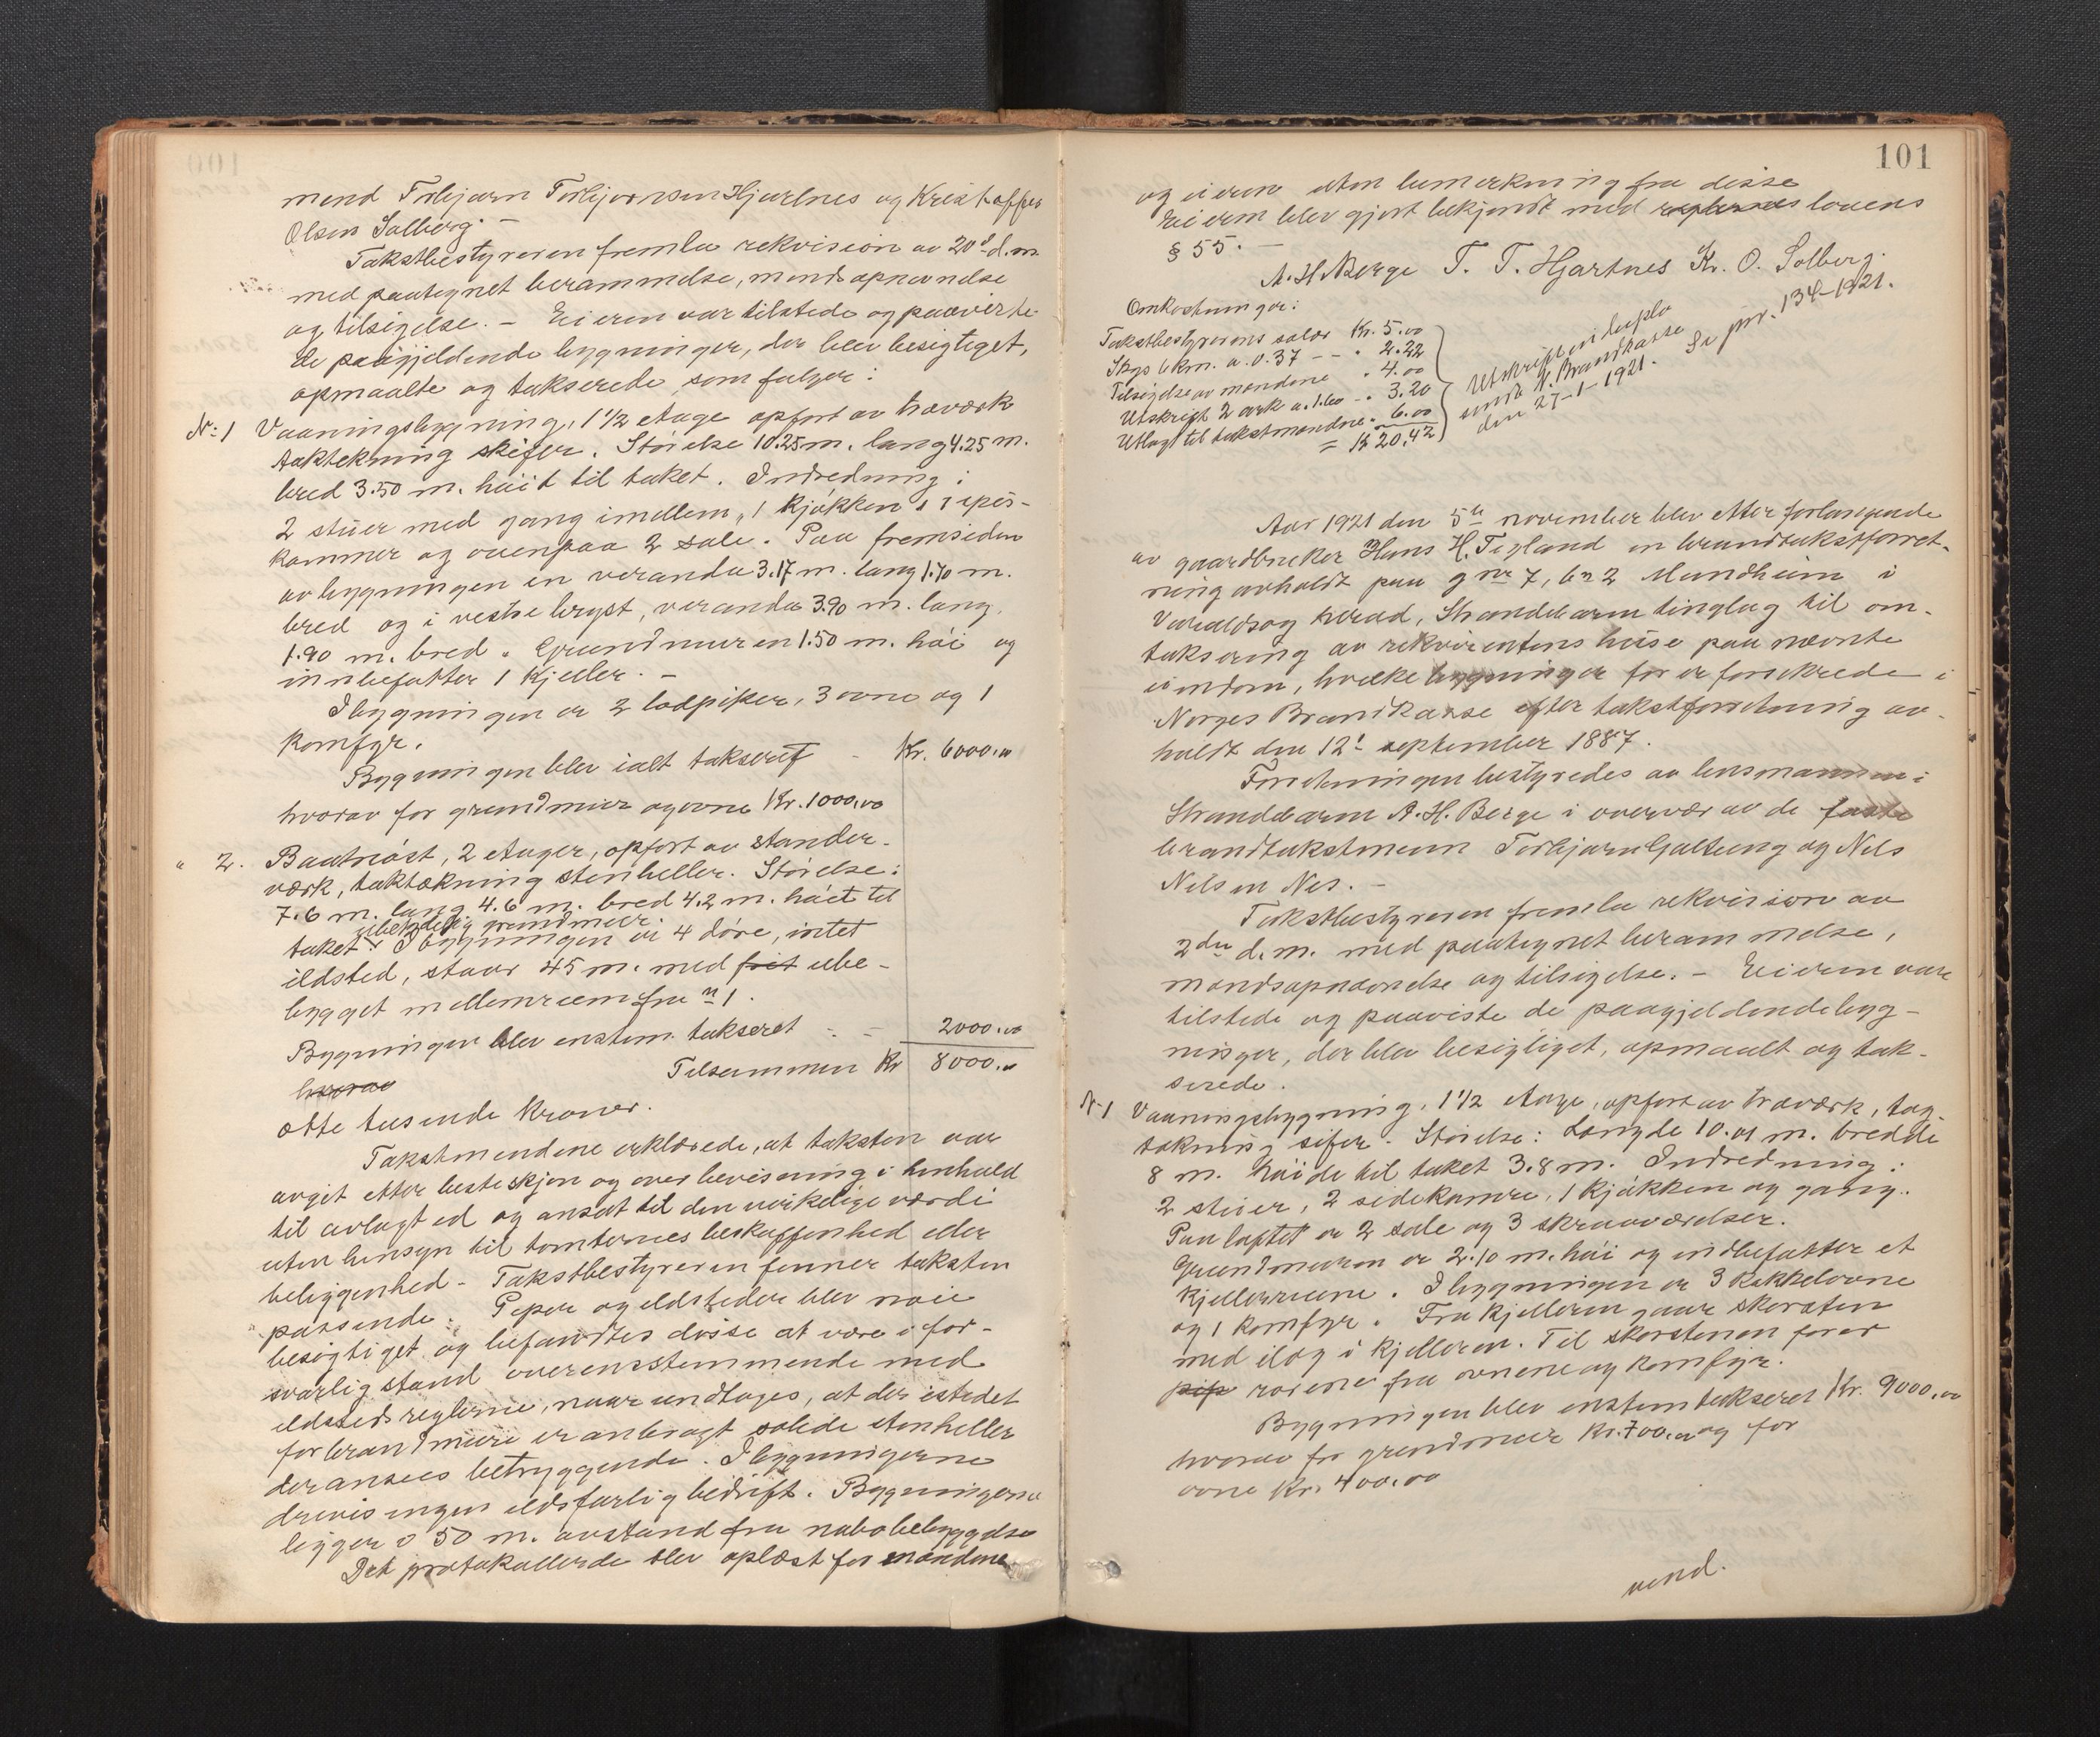 mænd Torbjørn Torbjørnsen Hjartnes og Kristoffer
Olsen Solberg. –
Takstbestyreren fremla rekvision av 20d d.m.
med paategnet berammelse, mændsopnævnelse
og tilsigelse. – Eieren var tilstede og paaviste
de paagjeldende bygninger, der blev besigtiget,
opmaalte og takserede som følger:
No: 1 Vaaningsbygning, 1 1/2 etage opført av træværk
taktekning skifer. Størelse 10.25 m. lang 4.25 m.
bred 3.50 m. høid til taket. Indredning:
2 stuer med gang imellem, 1 kjøkken, 1 spis-
kammer og ovenpaa 2 sale. Paa fremsiden
av bygningen en veranda 3.17 m. lang 1.70 m.
bred og i vestre bryst, veranda 3.90 m. lang,
1.90 m. bred. Grundmuren 1.50 m. høi og
innbefatter 1 kjeller. –
I bygningen er 2 lodpiper, 3 ovne og 1
komfyr.
Bygningen blev ialt takseret - Kr. 6000.00
hvorav for grundmur og ovne Kr. 1000.00
" 2. Baatnøst, 2 etager, opført av stander-
værk, taktækning stenheller. Størelse:
7.6 m. lang 4.6 m. bred 4.2 m. høit til
ubetydelig grundmur.
taket. I bygningen er 4 døre, intet
ildsted, staar 45 m. med frit ube-
bygget mellemrum fra n 1.
Bygningen blev enstem. takseret - - 2000.00
hvorav Tilsammen Kr 8000.00
otte tusende kroner.
Takstmændene erklærede, at taksten var
avgit efter beste skjøn og overbevisning i henhold
til avlagt ed og ansat til den virkelige værdi
uten hensyn til tomternes beskaffenhed eller
beliggenhed. Takstbestyreren finner taksten
passende. Piper og ildsteder blev nøie
besigtiget og befandtes disse at være i for-
svarlig stand overensstemmende med
ildstedsreglerne, naar undtages, at der istedet
for brandmure er anbragt solide stenheller
der ansees betryggende. I bygningerne
drives ingen ildsfarlig bedrift. Bygningerne
ligger o 50 m. avstand fra nabobebyggelse
Det protokollerede blev oplæst for mændene
101
og eieren uten bemerkning fra disse
Eieren blev gjort bekjendt med reglernes lovens
§ 55. –
A. H. Berge T. T. Hjartnes Kr. O. Solberg.
Omkostninger:
Takstbestyrerens salær Kr. 5.00
Skys 6 km. a. 0.37 - - " 2.22
Tilsigelse av mændene " 4.00
Utskrift 2 ark a. 1.60 - " 3.20
Utlagt til takstmændene " 6.00
= Kr 20.42
Utskriften i duplo
sendt N. Brandkasse
den 27-1-1921.
Se pnr. 134-1921.
Aar 1921 den 5te november blev efter forlangende
av gaardbruker Hans H. Tigland en brandtakstforret-
ning avholdt paa gnr 7, bn 2 Mundheim i
Varaldsøy herad, Strandebarm tinglag til om-
taksering av rekvirentens huse paa nævnte
eiendom, hvilke bygninger før er forsikrede i
Norges Brandkasse efter takstforretning av-
holdt den 12te september 1887.
Forretningen bestyredes av lensmannen i
Strandebarm A. H. Berge i overvær av de faste
brandtakstmenn Torbjørn Galtung og Nils
Nilsen Nes. –
Takstbestyreren fremla rekvision av
2den d.m. med paategnet berammelse,
mændsopnævnelse og tilsigelse. – Eieren var
tilstede og paaviste de paagjeldende byg-
ninger, der blev besigtiget, opmaalt og tak-
serede.
N. 1 Vaaningsbygning, 1 1/2 etage, opført av træværk, tag-
tækning sifer. Størelse: Længde 10.01 m. bredde
8 m. høide til taket 3.8 m. Indredning:
2 stuer, 2 sidekamre, 1 kjøkken og gang.
Paa loftet er 2 sale og 3 skraaværelser.
Grundmuren er 2.10 m. høi og indbefatter et
kjellerrum. I bygningen er 3 kakkelovne
og 1 komfyr. Fra kjelleren gaar skorsten
med ilæg i kjelleren. Til skorstenen fører
pip rørene fra ovnene og komfyr.
Bygningen blev enstem takseret Kr. 9000.00
hvorav for grundmur Kr. 700.00 og for
ovne Kr. 400.00
vend.